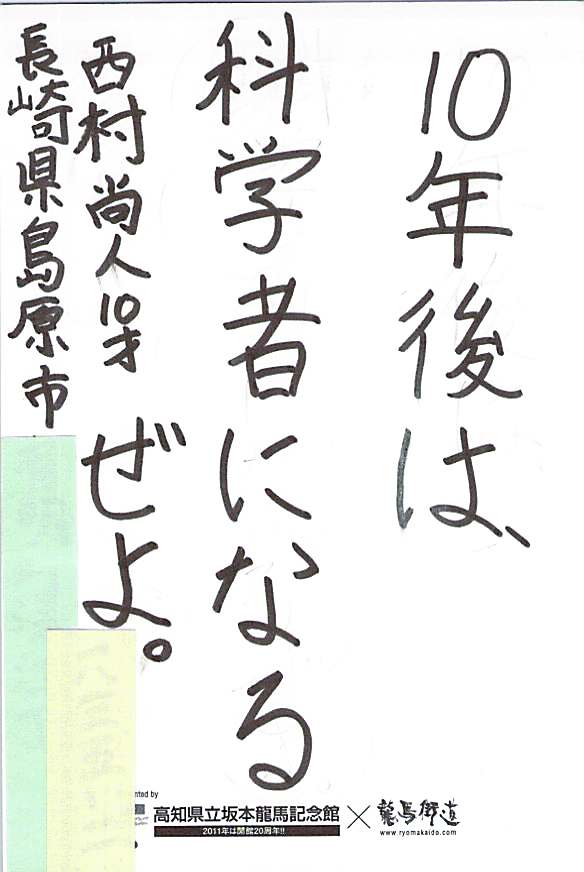 10年後は、
科学者になる
ぜよ。
西村尚人10才
長崎県島原市
nted by
高知県立坂本龍馬記念館×龍馬街道
2011年は開館20周年!!
www.ryomakaido.com